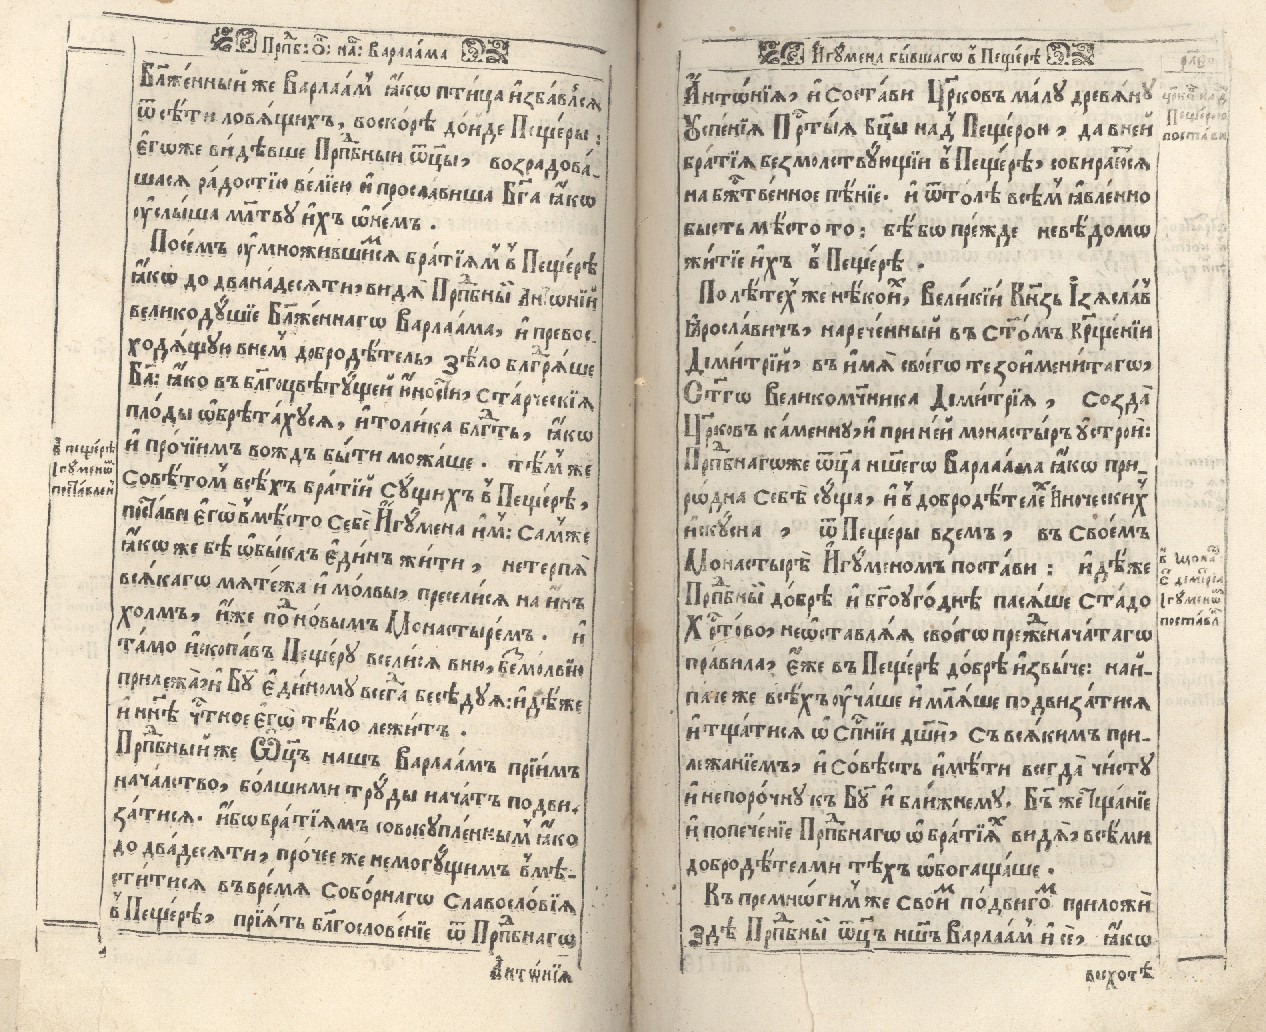 Прпⷣб: Ѻ҃: на҃: Варлаа́ма
Бл҃же́нный же Варлаа́мъ ꙗ҆́кѡ птица и҆зба́влсѧ
ѿ сѣ́ти ловѧ́щихъ, воскорѣ до́йде Пеще́ры:
Є҆гѡже ви́дѣвше Прпⷣбныи ѿц҃ы, возрадова́-
шасѧ ра́достїю ве́лїею и҆ просла́виша Бг҃а ꙗ҆́кѡ
ᲂу҆слы́ша мл҃тву и҆́хъ ѡ҆не́мъ.
Посе́мъ ᲂу҆мно́жившимⷨсѧ бра́тїѧмъ в̾ Пеще́рѣ
ꙗ҆́кѡ до двана́десѧти, ви́дѧ Прпⷣбныї Антѡ́нїй
великоду́шїе Бл҃же́ннагѡ Варлаа́ма, и҆ превос-
ходѧ́щую внемъ добродѣ́тель, ѕѣ́ло блгⷣрѧ́ше
Бг҃а: ꙗ҆́кѡ въ бл҃гоцвѣту́щей ю҆́ности, ста́рческїѧ
пло́ды ѡ҆брѣта́хусѧ, и҆ толи́ка блгⷣть, ꙗ҆́кѡ
и҆ про́чїимъ вождъ бы́ти можа́ше. тѣ́мъ же
совѣ́томъ всѣ́хъ бра́тїй су́щихъ в̾ Пеще́рѣ,
поста́ви є҆гѡ̀ вмѣ́сто себѐ И҆гу́мена и҆́мъ: Са́мъже
ꙗ҆́кѡ же бѣ ѡ҆бы́клъ є҆ди́нъ жи́ти, нетерпѧ̀
всѧ́кагѡ мѧте́жа и҆ мо́лвы, пресели́сѧ на и҆́нъ
холмъ, и҆́же поⷣ но́вымъ Монастыре́мъ. и҆
та́мо и҆скопа́въ Пеще́ру всели́сѧ в ню, безмо́лвїю
прилежа̀, и҆ Бг҃у є҆ди́ному всегда̀ бесѣ́дуѧ: и҆дѣ́же
и҆ нн҃ѣ чⷭ҇тное є҆гѡ̀ тѣ́ло лежи́тъ.
Прпⷣбный же Ѿц҃ъ нашъ Варлаа́мъ прїи́мъ
нача́лство, бо́лшими труды̀ нача́тъ подви-
за́тисѧ. и҆́бѡ бра́тїѧмъ совокупле́ннымъ ꙗ҆́ко
до два́десѧти, про́чее же немогу́щимъ вмѣ-
сти́тисѧ въ вре́мѧ Собо́рнагѡ Славосло́вїѧ
в̾ Пеще́рѣ, прїѧ́тъ бл҃гослове́нїе ѿ Прпⷣбнагѡ
Антѡ́нїѧ
В̾ пеще́рѣ
І҆гу́меномъ
поста́вленъ
И҆гу́мена бы́вшагѡ в̾ Пеще́рѣ
Антѡ́нїѧ, и҆ соста́ви Цр҃ковъ ма́лу древѧ́ну
Успе́нїѧ Прⷭ҇ты́ѧ Бц҃ы над̾ Пеще́рою, да в ней
бра́тїѧ безмо́лствующїи в̾ Пеще́рѣ, собира́ютсѧ
на бж҃твенное пѣ́нїе. и҆ ѿто́лѣ всѣ́мъ ꙗ҆вле́нно
бысть мѣ́сто то: бѣ́ бо пре́жде невѣ́домѡ
житїе и҆́хъ в̾ Пеще́рѣ.
По лѣ́техъ же нѣ́коихъ, Вели́кїй Кн҃зь І҆зѧсла́въ
Ꙗ҆росла́вичъ, нарече́нный въ ст҃о́мъ Кр҃ще́нїи
Дїми́трїй, въ и҆́мѧ своегѡ̀ тезои҆мени́тагѡ,
Ст҃гѡ Великомч҃ника Дїми́трїѧ, созда̀
Цр҃ковъ ка́менну, и҆ при не́й монасты́ръ ᲂу҆стро́и:
Прпⷣбнагѡже ѿц҃а нш҃егѡ Варлаа́ма ꙗ҆́кѡ при-
рѡ́дна себѐ су́ща, и҆ в̾ добродѣ́телехъ И҆но́ческихъ
и҆ску́сна, ѿ Пеще́ры взе́мъ, въ свое́мъ
Монастырѐ И҆гу́меномъ поста́ви: и҆дѣ́же
Прпⷣбныї до́брѣ и҆ бг҃оуго́днѣ пасѧ́ше ста́до
Хрⷭ҇то́во, неѡ҆ставлѧ́ѧ своегѡ̀ пре́жденача́тагѡ
пра́вила, є҆́же въ Пеще́рѣ до́брѣ и҆звы́че: най-
па́че же всѣ́хъ ᲂу҆ча́ше и҆ мл҃ѧше подвиза́тисѧ
и҆ тща́тисѧ ѡ҆ сп҃нїи дш҃и, съ всѧ́кимъ при-
лежа́нїемъ, и҆ со́вѣсть и҆мѣ́ти всегда̀ чи́сту
и҆ непоро́чну къ Бг҃у и҆ бли́жнему. Бг҃ъ же тща́нїе
и҆ попече́нїе Прпⷣбнагѡ ѡ҆ бра́тїѧхъ ви́дѧ, всѣ́ми
добродѣ́телми тѣ́хъ ѡ҆богаща́ше.
Къ премнѡ́гимъ же свои́мъ по́двигомъ приложѝ
здѣ́ Прпⷣбныї ѿц҃ъ нш҃ъ Варлаа́мъ и҆ сѐ, ꙗ҆́кѡ
восхотѣ̀
Пеще́рою
поста́ви
С. Дїми́трїѧ
І҆гу́меномъ
поста́вленъ